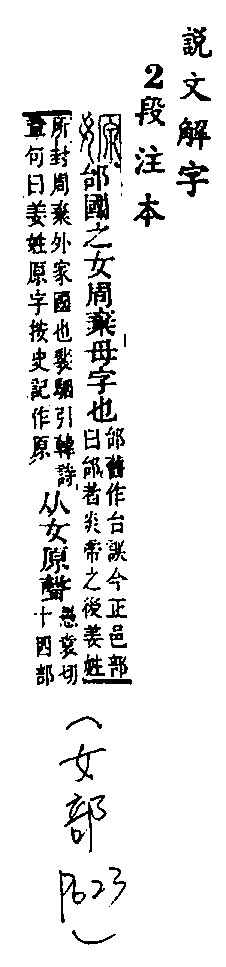 説文解字
2段注本
嫄 邰國之女周棄母字也
邰舊作台誤今正邑部
曰邰者炎帝之後姜姓
所封周棄外家國也裴駰引韓詩
章句曰姜姓原字按史記作原
从女原聲
愚袁切
十四部
(女部 P623)